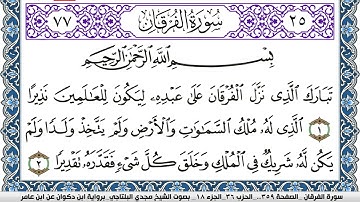 ٧٧ سُورَةُ الفُرْقَانِ ٢٥
بِسْمِ اللَّهِ الرَّحْمَٰنِ الرَّحِيمِ
تَبَارَكَ الَّذِي نَزَّلَ الْفُرْقَانَ عَلَىٰ عَبْدِهِ لِيَكُونَ لِلْعَالَمِينَ نَذِيرًا
١ الَّذِي لَهُ مُلْكُ السَّمَاوَاتِ وَالْأَرْضِ وَلَمْ يَتَّخِذْ وَلَدًا وَلَمْ
يَكُن لَّهُ شَرِيكٌ فِي الْمُلْكِ وَخَلَقَ كُلَّ شَيْءٍ فَقَدَّرَهُ تَقْدِيرًا ٢
سورة الفرقان _ الصفحة ٣٥٩ _ الحزب ٣٦ _ الجزء ١٨ _ بصوت الشيخ مجدي البلتاجي _ برواية ابن ذكوان عن ابن عامر